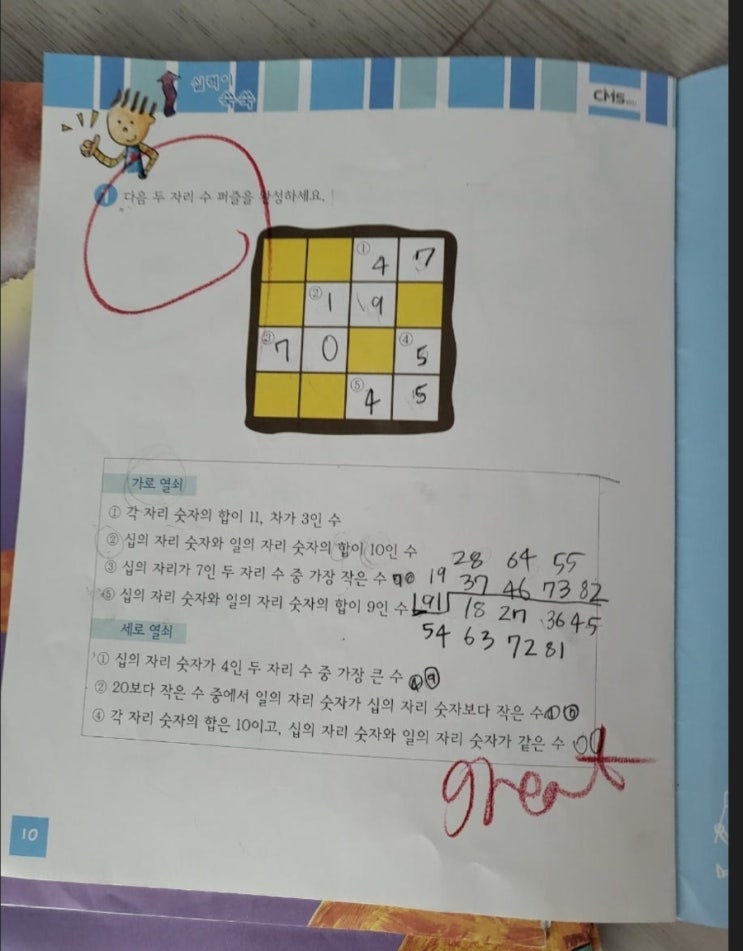 실력이
쑥쑥
CMS
1 다음 두 자리 수 퍼즐을 완성하세요.
① 4 7
② 1 9
③ 7 0 ④ 5
⑤ 4 5
가로 열쇠
① 각 자리 숫자의 합이 11, 차가 3인 수
② 십의 자리 숫자와 일의 자리 숫자의 합이 10인 수
28 64 55
③ 십의 자리가 7인 두 자리 수 중 가장 작은 수 70 19 37 46 73 82
⑤ 십의 자리 숫자와 일의 자리 숫자의 합이 9인 수 91 18 27 36 45
54 63 72 81
세로 열쇠
① 십의 자리 숫자가 4인 두 자리 수 중 가장 큰 수 4 9
② 20보다 작은 수 중에서 일의 자리 숫자가 십의 자리 숫자보다 작은 수 1 0
④ 각 자리 숫자의 합은 10이고, 십의 자리 숫자와 일의 자리 숫자가 같은 수
great
10